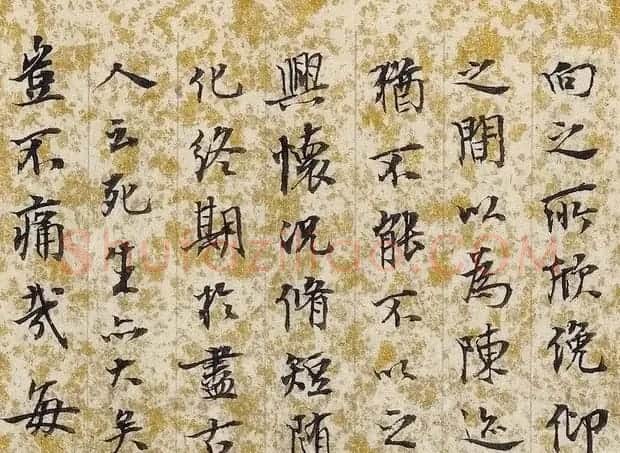 向之所欣俛仰
之間以為陳迹
猶不能不以之
興懷況脩短随
化終期於盡古
人云死生亦大矣
豈不痛哉每